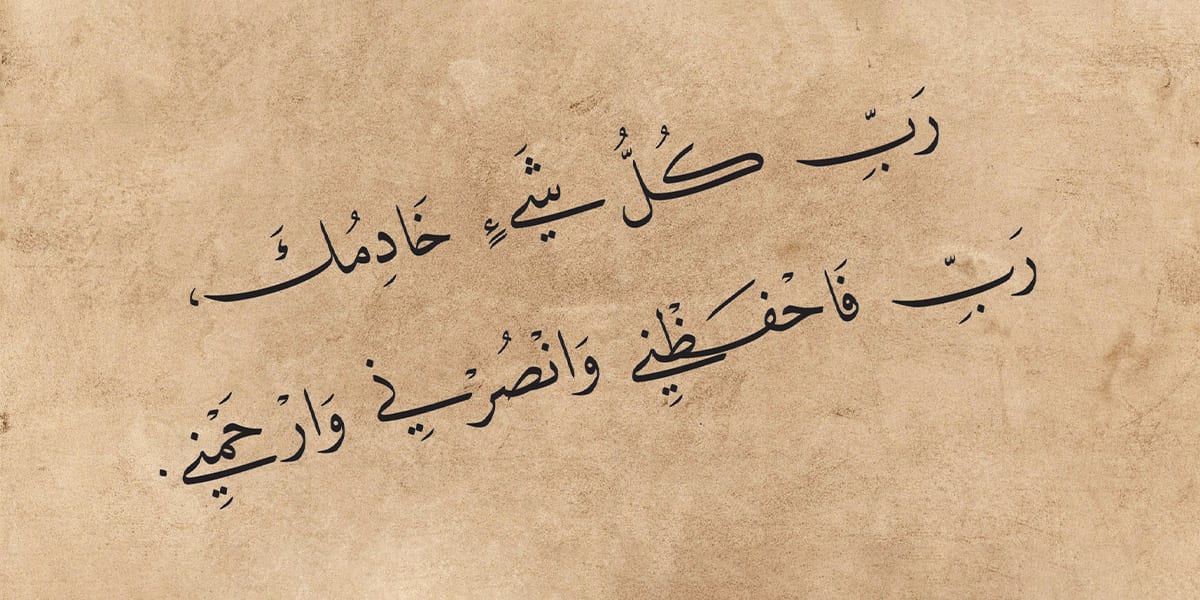 رَبِّ كُلُّ شَيْءٍ خَادِمُكَ،
رَبِّ فَاحْفَظْنِي وَانْصُرْنِي وَارْحَمْنِي.